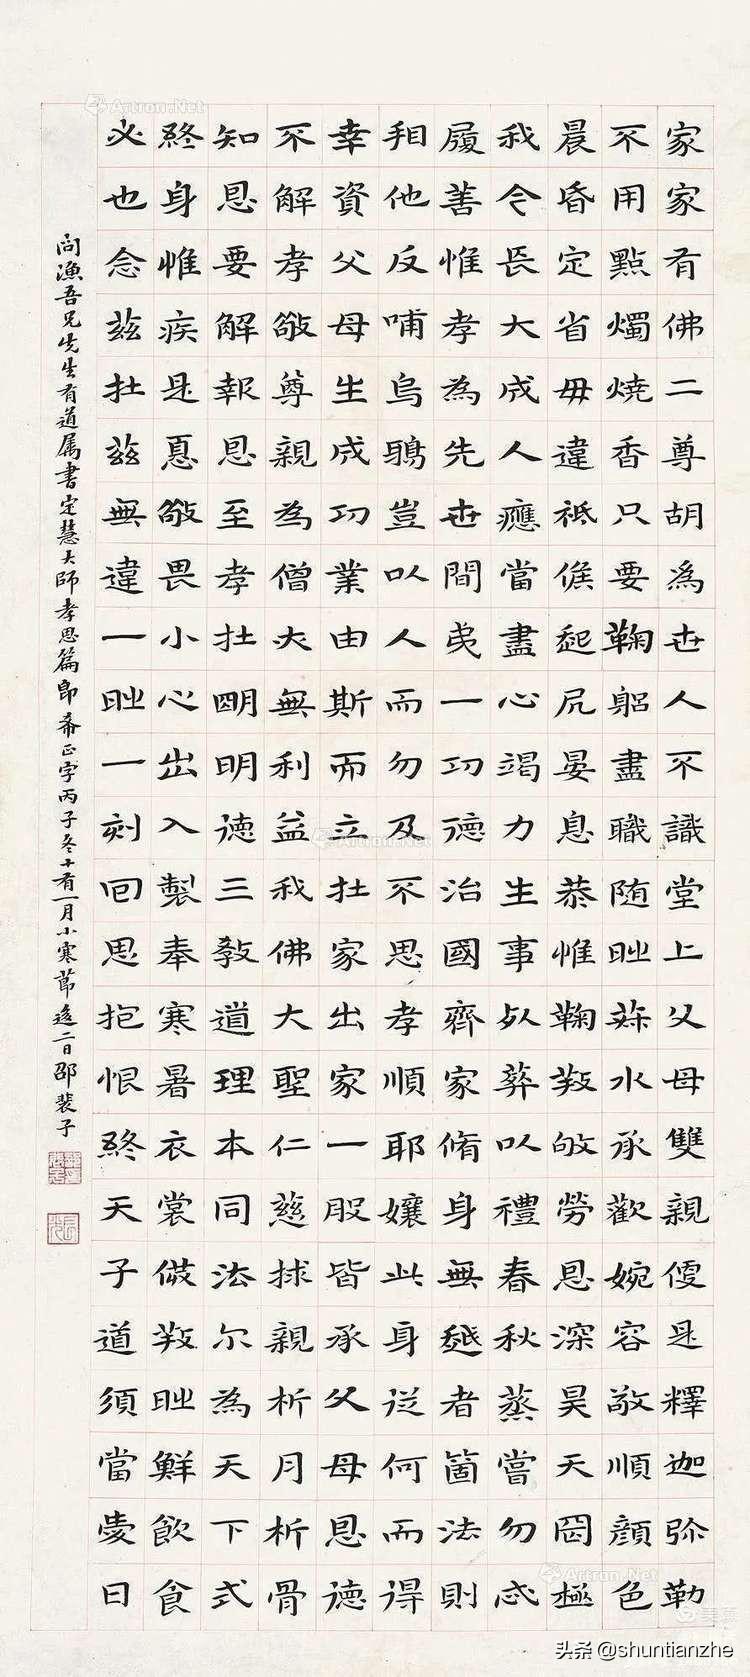 家家有佛二尊胡為世人不識堂上父母雙親便是釋迦弥勒
不用點燭燒香只要鞠躬盡職随時菽水承歡婉容敬順顏色
晨昏定省毋違祗候起居晏息恭惟鞠教劬勞恩深昊天罔極
我今長大成人應當盡心竭力生事死葬以禮春秋蒸嘗勿忘
履善惟孝為先世間弟一功德治國齊家脩身無越者箇法則
相他反哺烏鴉豈以人而勿及不思孝順耶孃此身從何而得
幸資父母生成功業由斯而立在家出家一般皆承父母恩德
不解孝敬尊親為僧亦無利益我佛大聖仁慈捄親析肉析骨
知恩要解報恩至孝在明明德三教道理本同法尔為天下式
終身惟疾是憂敬畏小心出入製奉寒暑衣裳教時鮮飲食
必也念茲在茲無違一時一刻回思抱恨終天子道須當愛日
問漁吾兄先生有道屬書定慧大師孝思篇即希正字丙子冬十有一月小寒節後二日邵裴子
Artron.Net
Artron.Net
Artron.Net
头条 @shuntianzhe